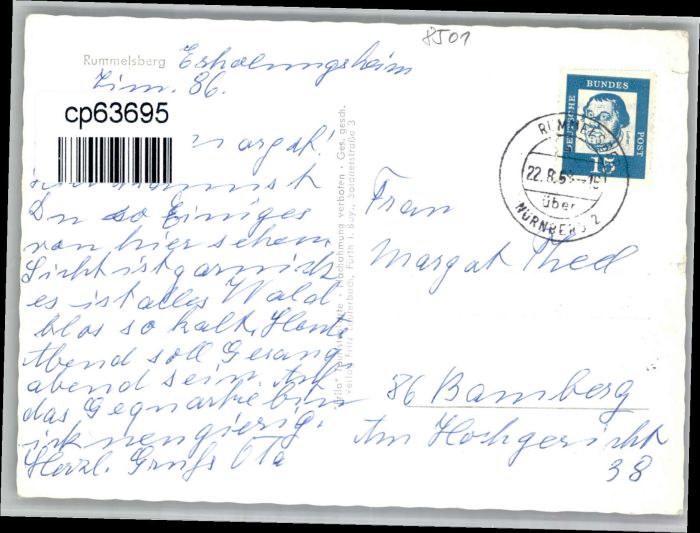 8J01
Rummelsberg Erholungsheim
Zim. 86.
cp63695
Margat!
Du so Einiges
von hier sehen.
Sicht ist gar nicht
es ist alles Wald
blos so kalt. Heute
Abend soll Gesang-
abend sein. Auf
das Gequarke bin
ich neugierig.
Herzl. Gruß Ota
Nachahmung verboten · Ges. gesch.
Fürth i. Bay.
DEUTSCHE BUNDES POST
15
22.8.6
über
NÜRNBERG 2
Frau
Margat Thed
86 Bamberg
Am Hochgericht
38